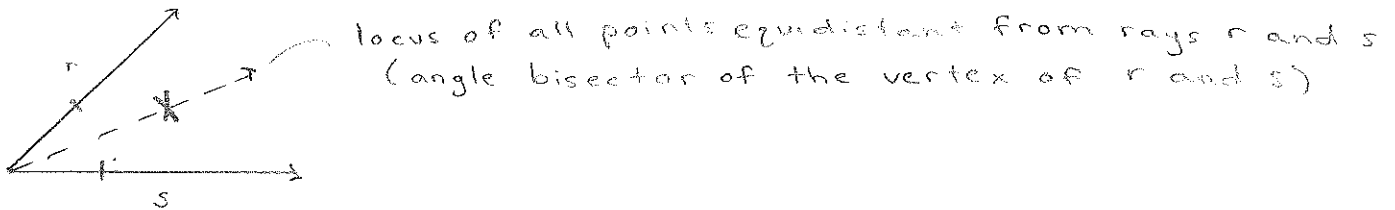 locus of all points equidistant from rays r and s
(angle bisector of the vertex of r and s)
r
s